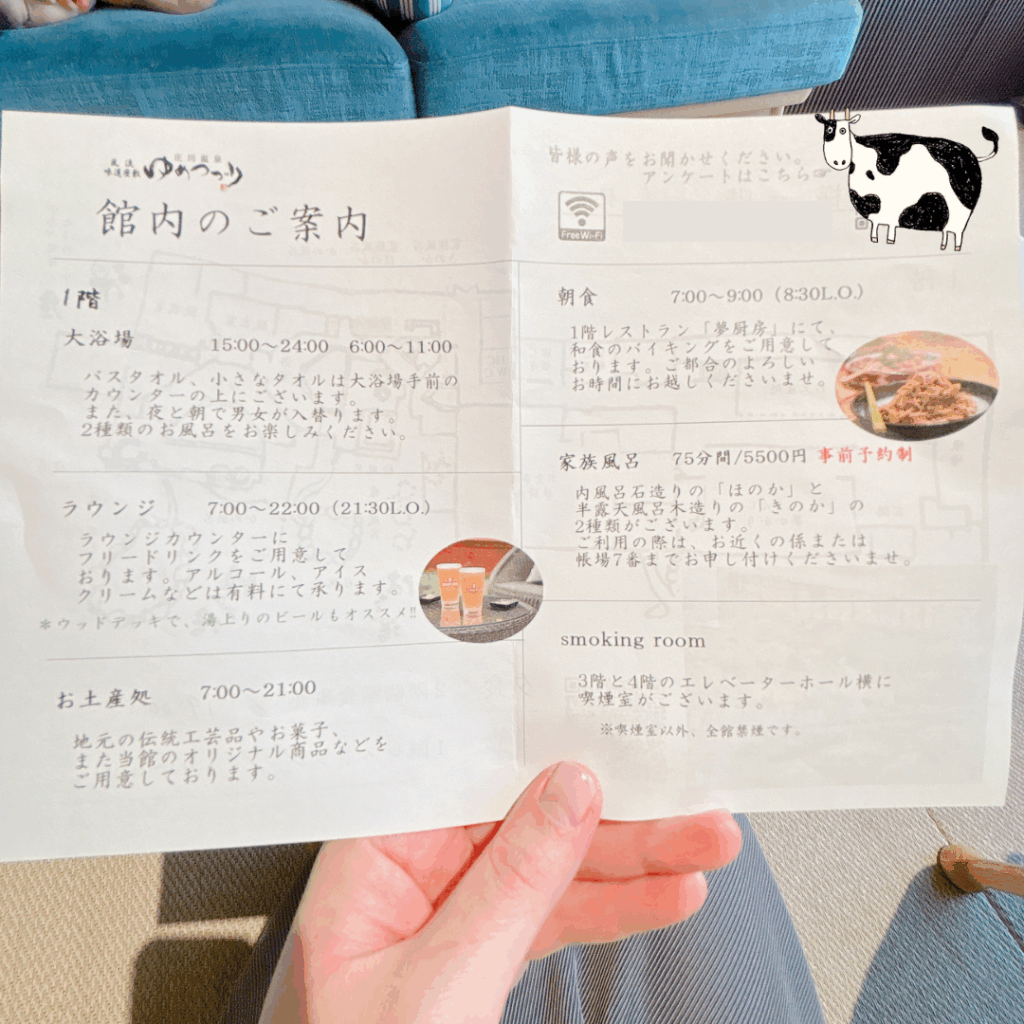 庄川温泉
風流
味道座敷 ゆめつづり
館内のご案内
皆様の声をお聞かせください。
アンケートはこちら☞
Free Wi-Fi
1階
大浴場 15:00～24:00 6:00～11:00
バスタオル、小さなタオルは大浴場手前の
カウンターの上にございます。
また、夜と朝で男女が入替ります。
2種類のお風呂をお楽しみください。
ラウンジ 7:00～22:00（21:30L.O.）
ラウンジカウンターに
フリードリンクをご用意して
おります。アルコール、アイス
クリームなどは有料にて承ります。
＊ウッドデッキで、湯上りのビールもオススメ!!
お土産処 7:00～21:00
地元の伝統工芸品やお菓子、
また当館のオリジナル商品などを
ご用意しております。
朝食 7:00～9:00（8:30L.O.）
1階レストラン「夢厨房」にて、
和食のバイキングをご用意して
おります。ご都合のよろしい
お時間にお越しくださいませ。
家族風呂 75分間/5500円 事前予約制
内風呂石造りの「ほのか」と
半露天風呂木造りの「きのか」の
2種類がございます。
ご利用の際は、お近くの係または
帳場7番までお申し付けくださいませ。
smoking room
3階と4階のエレベーターホール横に
喫煙室がございます。
※喫煙室以外、全館禁煙です。